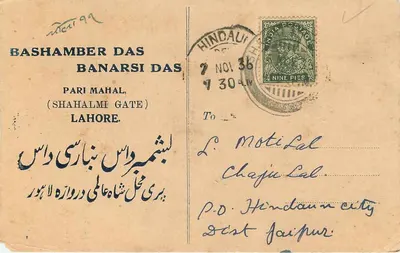 BASHAMBER DAS
BANARSI DAS
PARI MAHAL,
(SHAHALMI GATE)
LAHORE.
بشمبر داس بنارسی داس
پری محل شاہ عالمی دروازہ لاہور
HINDAU
7 NOV 36
7 30 AM
NINE PIES
To
L. Moti Lal
Chaju Lal
P.O. Hindaun city
Dist Jaipur.